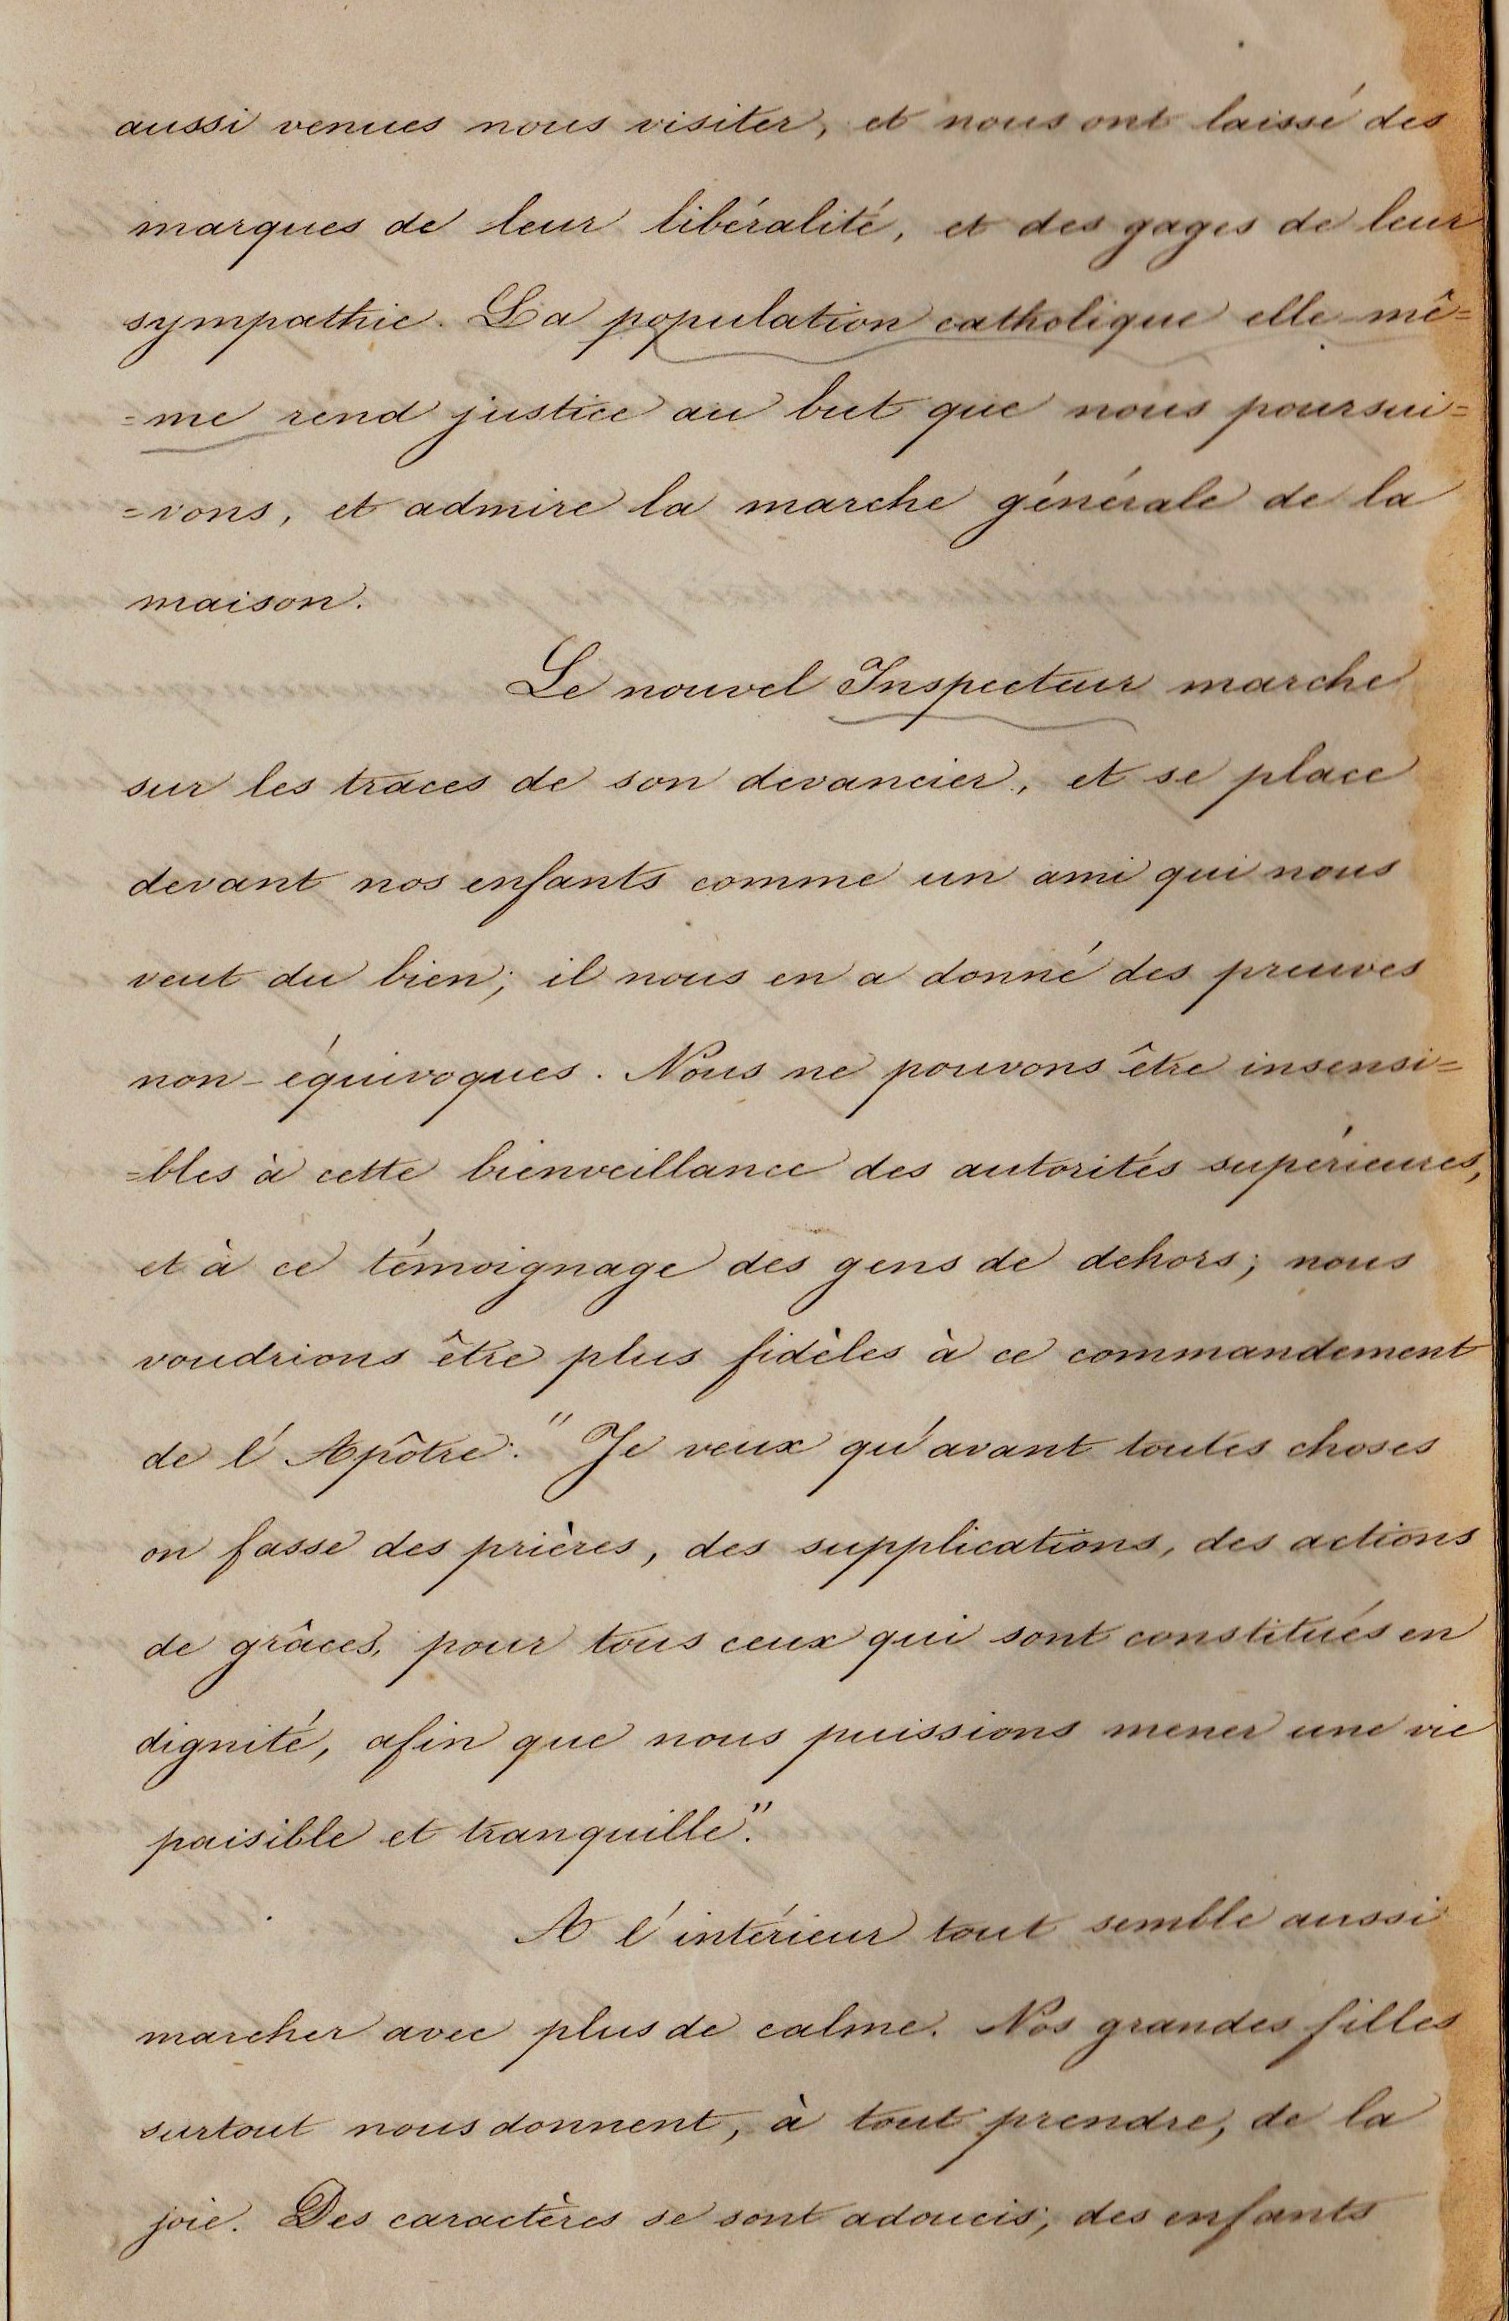 aussi venues nous visiter, et nous ont laissé des
marques de leur libéralité, et des gages de leur
sympathie. La population catholique elle-mê=
=me rend justice au but que nous poursui=
=vons, et admire la marche générale de la
maison.
Le nouvel Inspecteur marche
sur les traces de son devancier, et se place
devant nos enfants comme un ami qui nous
veut du bien; il nous en a donné des preuves
non-équivoques. Nous ne pouvons être insensi=
=bles à cette bienveillance des autorités supérieures,
et à ce témoignage des gens de dehors; nous
voudrions être plus fidèles à ce commandement
de l'Apôtre: "Je veux qu'avant toutes choses
on fasse des prières, des supplications, des actions
de grâces, pour tous ceux qui sont constitués en
dignité, afin que nous puissions mener une vie
paisible et tranquille."
A l'intérieur tout semble aussi
marcher avec plus de calme. Nos grandes filles
surtout nous donnent, à tout prendre, de la
joie. Des caractères se sont adoucis; des enfants